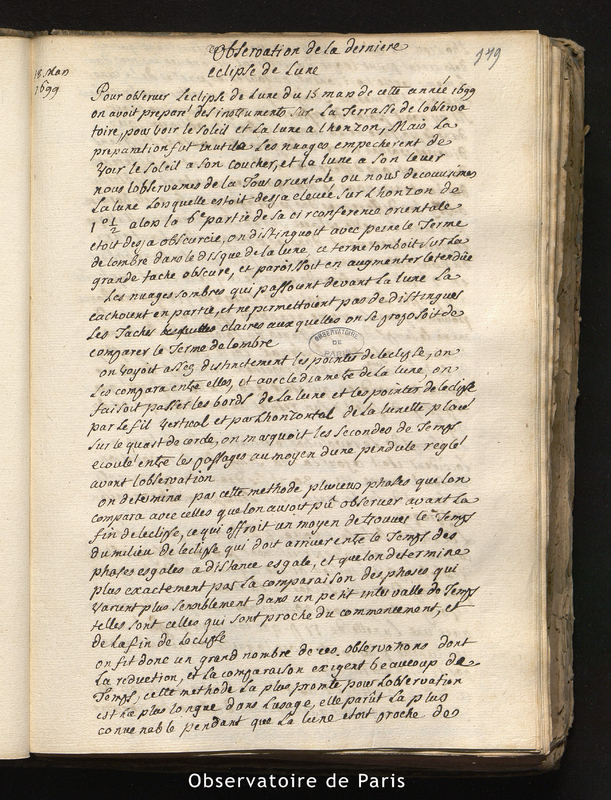 Observation de la derniere
179
eclipse de Lune
18. Mars
1699
Pour observer Leclipse de Lune du 15 mars de cette année 1699
on avoit preparé des instruments sur La Terrasse de lobserva
toire, pour voir le soleil et La lune a lhorizon, Mais La
preparation fut inutile Les nuages empecherent de
voir le soleil a son coucher, et la lune a son lever
nous lobservames de la Tour orientale ou nous decouvrimes
La lune Lorsquelle estoit desja elevée sur Lhorizon de
1° 1/2 alors la 6e partie de sa circonference orientale
etoit desja obscurcie, on distinguoit avec peine le Terme
de lombre dans le disque de la lune ce terme tomboit sur La
grande tache obscure, et paroissoit en augmenter letendüe
Les nuages sombres qui passoient devant la lune La
cachoient en partie, et ne permettoient pas de distinguer
Les Taches claires auxquelles on se proposoit de
comparer le Terme de lombre
OBSERVATOIRE
DE
PARIS
on voyoit assez distinctement les pointes de leclipse, on
Les compara entre elles, et avec le diametre de la lune, on
faisoit passer les bords de la lune et les pointes de leclipse
par le fil vertical et par lhorizontal de la lunette placé
sur le quart de cercle, on marquoit les secondes de Temps
ecoulé entre les passages au moyen dune pendule reglé
avant lobservation
on determina par cette methode plusieurs phases que lon
compara avec celles que lon avoit pû observer avant La
fin de leclipse, ce qui offroit un moyen de trouver le Temps
du milieu de leclipse qui doit arriver entre le Temps des
phases esgales a distance esgale, et que lon determine
plus exactement par la comparaison des phases qui
varient plus sensiblement dans un petit intervalle de Temps
telles sont celles qui sont proche du commencement, et
de la fin de leclipse
on fit donc un grand nombre de ces observations dont
La reduction, et la comparaison exigent beaucoup de
Temps, cette methode La plus promte pour lobservation
est la plus longue dans lusage, elle parût La plus
convenable pendant que La lune etoit proche de
Observatoire de Paris